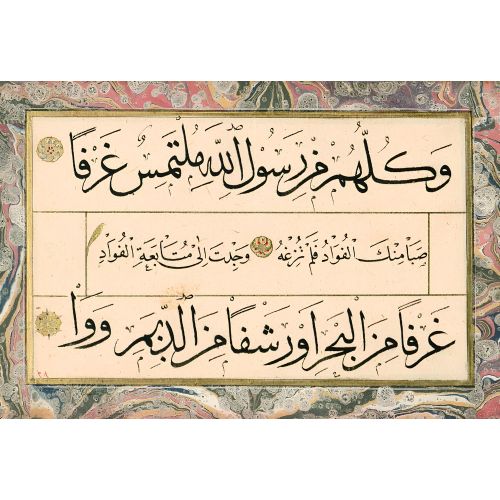 وَكُلُّهُمْ مِنْ رَسُولِ اللّٰهِ مُلْتَمِسٌ غَرْفًا
صَبَا مِنْكَ الْفُؤَادُ فَلَمْ تَزَعْهُ وَجَدْتَ اِلٰى مُتَابَعَةِ الْفُؤَادِ
غَرْفًا مِنَ الْبَحْرِ اَوْ رَشْفًا مِنَ الدِّيَمِ وَوَا